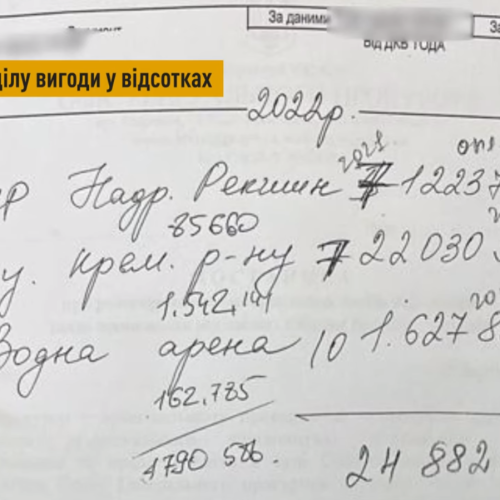 За даними
За
ВІД ДКВ ГОДА
ділу вигоди у відсотках
2022р.
Надр. Рекшин 7 12237
2021 опл
85660
у. крем. р-ну 7 22030
1.542,141
Водна арена 10 1.6278
162.785
1790 586.
24 882